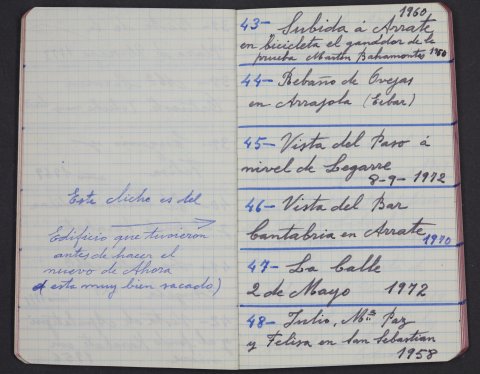 Este cliche es del
Edificio que tuvieron
antes de hacer el
nuevo de Ahora
esta muy bien sacado)
1960
43- Subida á Arrate
en bicicleta el ganador de la
prueba Martin Bahamontes 1960
44- Rebaño de Ovejas
en Arrajola (Eibar)
45- Vista del Paso á
nivel de Legarre
8-9-1972
46- Vista del Bar
Cantabria en Arrate
1970
47- La Calle
2 de Mayo 1972
48- Julio, Mª Paz
y Felisa en San Sebastian
1958